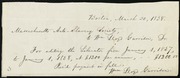 Boston, March 30, 1858.
Massachusetts Anti-Slavery Society,
To Wm Lloyd Garrison, Dr.
For editing the Liberator from January 1, 1857,
to January 1, 1858, at $1200 per annum, $1200.00
Rec'd payment in full,
Wm. Lloyd Garrison.